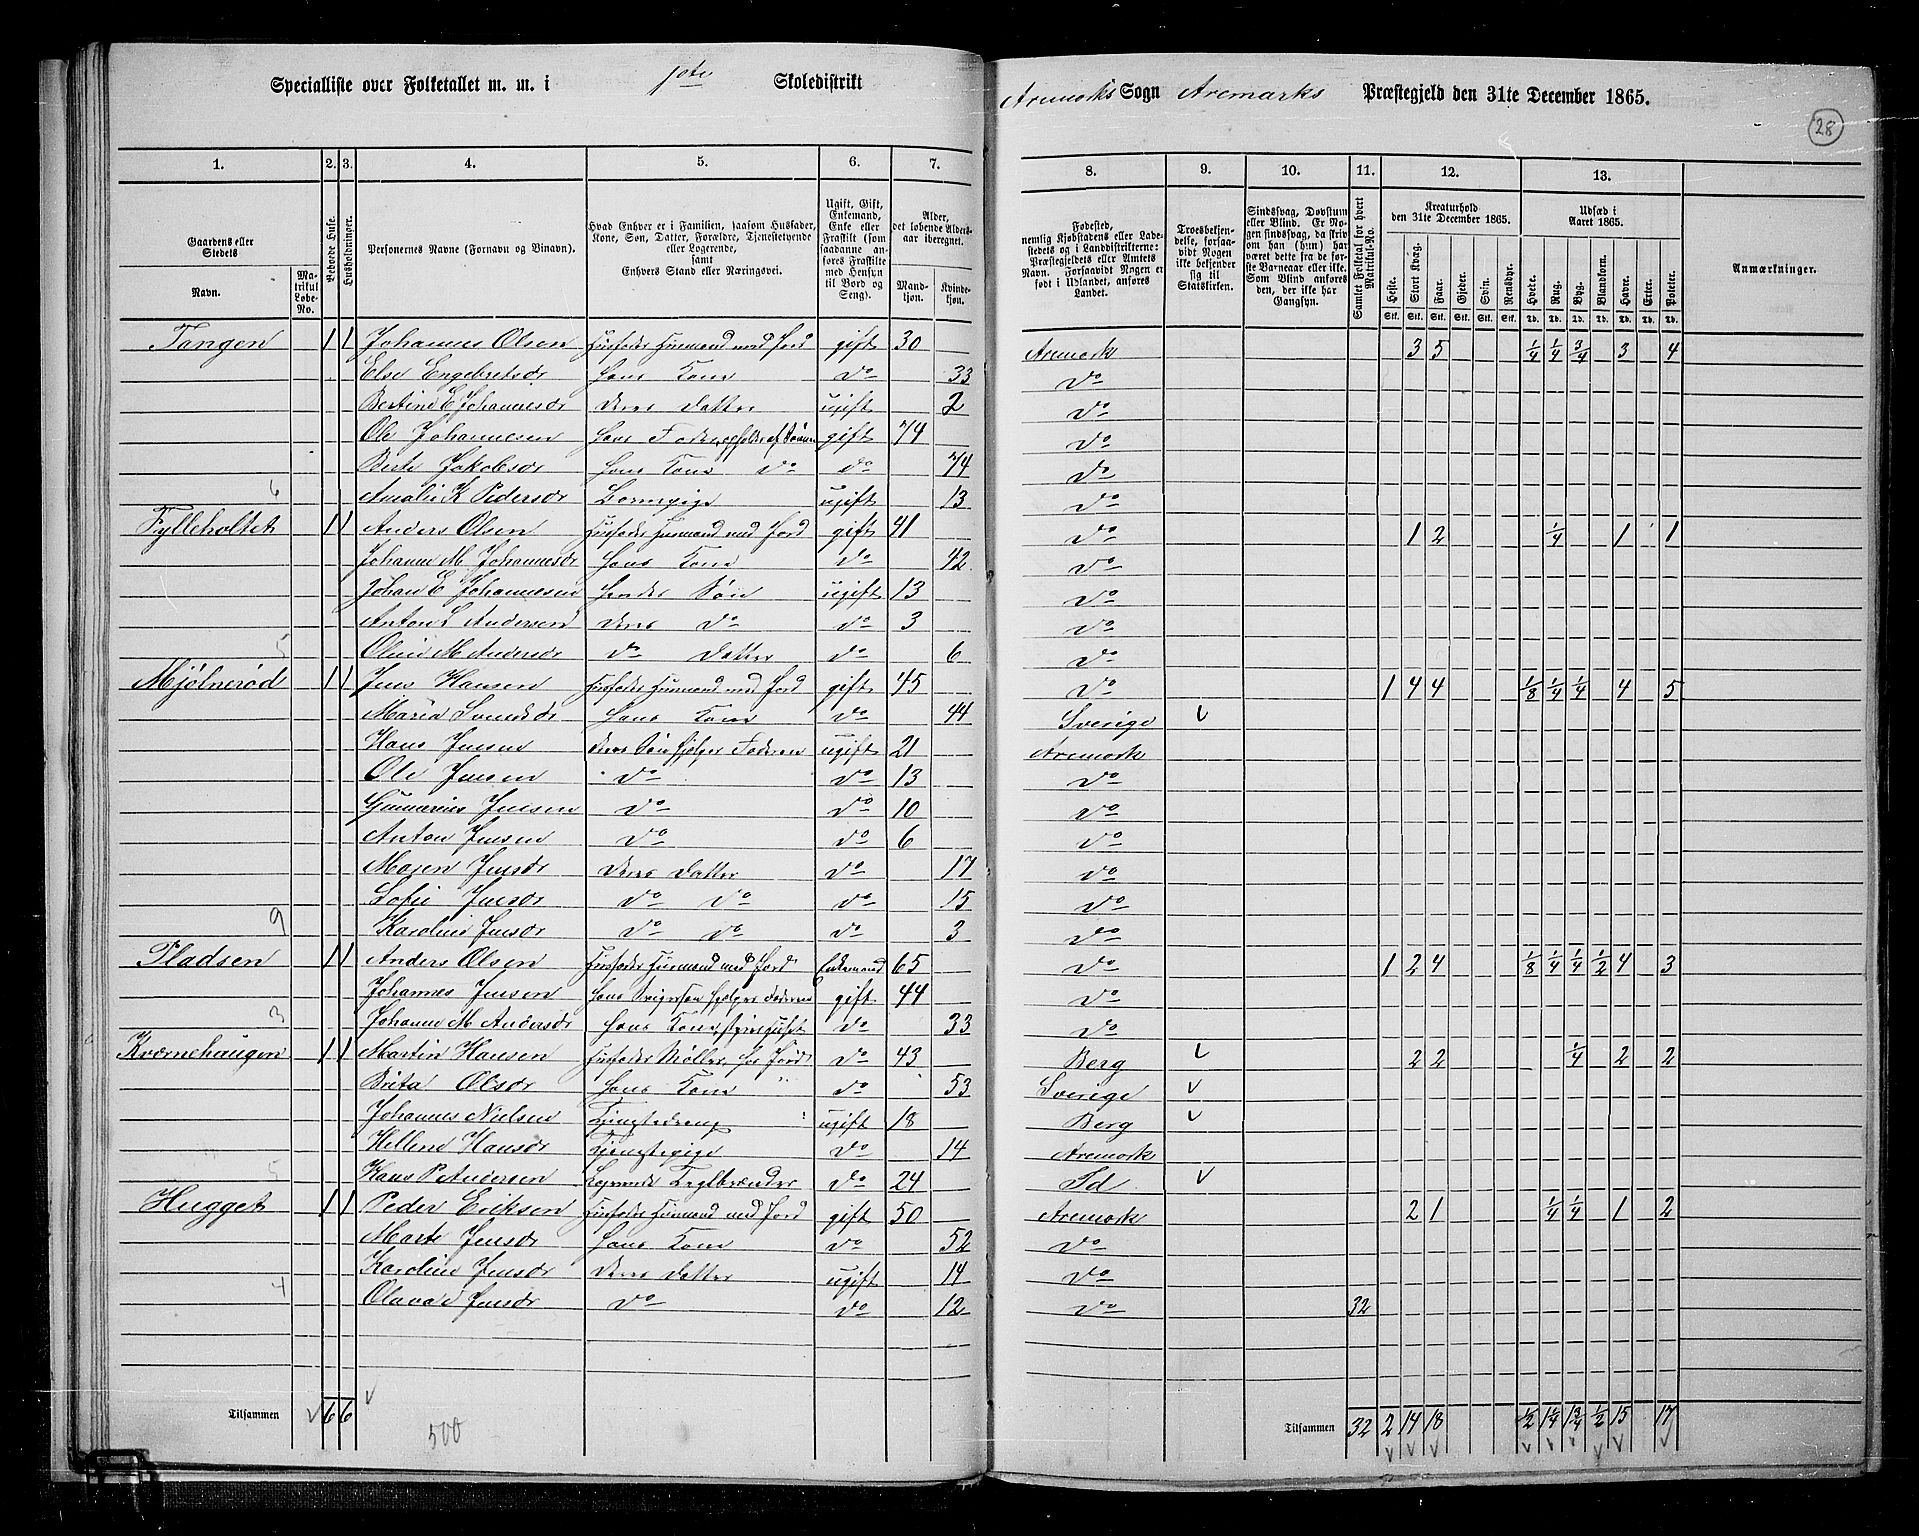 Specialliste over Folketallet m. m. i 1ste Skoledistrikt Aremarks Sogn Aremarks Præstegjeld den 31te December 1865.
28
1. 2. 3. 4. 5. 6. 7. 8. 9. 10. 11. 12. 13.
Gaardens eller Stedets Navn. Matrikul Løbe-No.
Beboede Huse.
Husholdninger.
Personernes Navne (Fornavn og Binavn).
Hvad Enhver er i Familien, saasom Husfader, Kone, Søn, Datter, Forældre, Tjenestetyende eller Logerende, samt Enhvers Stand eller Næringsvei.
Ugift, Gift, Enkemand, Enke eller Fraskilt (som saadanne anføres Fraskilte med Hensyn til Bord og Seng).
Alder, det løbende Aldersaar iberegnet. Mandkjøn. Kvindekjøn.
Fødested, nemlig Kjøbstadens eller Ladestedets og i Landdistrikterne: Præstegjeldets eller Amtets Navn. Forsaavidt Nogen er født i Udlandet, anføres Landet.
Troesbekjendelse, forsaavidt Nogen ikke bekjender sig til Statskirken.
Sindssvag, Døvstum eller Blind. Er Nogen sindssvag, da skriv om han (hun) har været dette fra de første Barneaar eller ikke. Som Blind anføres den, der ikke har Gangsyn.
Samlet Folketal for hvert Matrikul-No.
Kreaturhold den 31te December 1865. Heste. Stort Kvæg. Faar. Gjeder. Svin. Rensdyr.
Udsæd i Aaret 1865. Hvede. Rug. Byg. Blandkorn. Havre. Erter. Poteter.
Anmærkninger.
Stk. Stk. Stk. Stk. Stk. Stk. Td. Td. Td. Td. Td. Td. Td.
Tangen 1 1 Johannes Olsen Husfader Husmand med Jord gift 30 Aremark 3 5 1/4 1/4 3/4 3 4
Else Engebretsdr Hans Kone do 33 do
Bertine E Johannesdr Deres Datter ugift 2 do
Ole Johannesen Hans Fader, opholdes af Sønnen gift 74 do
Berte Jakobsdr Hans Kone do do 74 do
6 Amalie K Pedersdr Barnepige ugift 13 do
Fylleholtet 1 1 Anders Olsen Husfader Husmand med Jord gift 41 do 1 2 1/4 1 1
Johanne M Johannesdr Hans Kone do 42 do
Johan E Johannesen Hendes Søn ugift 13 do
Anton L Andersen Deres do do 3 do
5 Oline M Andersdr do Datter do 6 do
Mjølnerød 1 1 Jens Hansen Husfader Husmand med Jord gift 45 do 1 4 4 1/8 1/4 1/4 4 5
Maria Svendsdr Hans Kone do 44 Sverige
Hans Jensen Deres Søn hjelper Faderen ugift 21 Aremark
Ole Jensen do do 13 do
Gunnerius Jensen do do 10 do
Anton Jensen do do 6 do
Maren Jensdr Deres Datter do 17 do
Sofie Jensdr do do do 15 do
9 Karoline Jensdr do do do 3 do
Pladsen 1 1 Anders Olsen Husfader Husmand med Jord Enkemand 65 do 1 2 4 1/8 1/4 1/4 1/2 4 3
Johannes Jensen Hans Svigersøn hjelper Faderen gift 44 do
3 Johanne M Andersdr Hans Kone, do 33 do
Kværnehaugen 1 1 Martin Hansen Husfader Møller, har Jord do 43 Berg 2 2 1/4 2 2
Brita Olsdr Hans Kone do 53 Sverige
Johannes Nielsen Tjenestedreng ugift 18 Berg
Hellene Hansdr Tjenestepige do 14 Aremark
5 Hans P Andersen Logerende Teglbrænder do 24 Id
Hugget 1 1 Peder Eriksen Husfader Husmand med Jord gift 50 Aremark 2 1 1/4 1/4 1 2
Marte Jensdr Hans Kone do 52 do
Karoline Jensdr Deres Datter ugift 14 do
4 Olava Jensdr do do 12 do 32
Tilsammen 6 6 Tilsammen 32 2 14 18 1/2 1 1/4 1 3/4 1/2 15 17
500